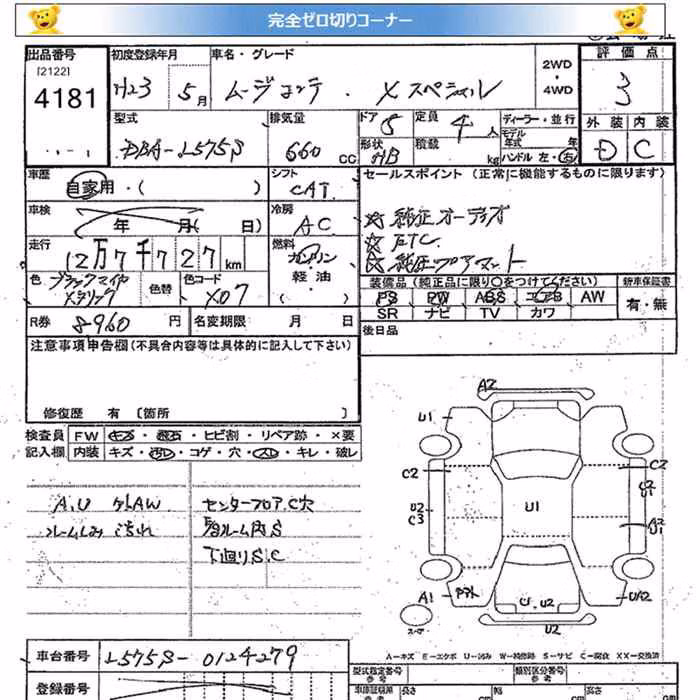 完全ゼロ切りコーナー
出品番号 初度登録年月 車名・グレード 2WD・4WD 評価点
[2122]
4181 H23 5月 ムーヴコンテ ・ Xスペシャル 3
型式 排気量 ドア 5 定員 4人 ディーラー・並行 外装 内装
モデル年式 年
DBA-L575S 660 CC 形状 HB 積載 kg ハンドル 左・右 D C
車歴 自家用・( ) シフト CAT セールスポイント (正常に機能するものに限ります)
車検 年 月( 日) 冷房 AC ☆純正オーディオ
☆ETC
走行 12万7千727km 燃料 ガソリン・軽油 ☆純正フロアマット
色 ブラックマイカメタリック 色替 色コード X07 装備品 (純正品に限り○をつけてください) 新車保証書
PS PW ABS エアB AW 有・無
SR ナビ TV カワ
R券 8960円 名変期限 月 日 後日品
注意事項申告欄(不具合内容等は具体的に記入して下さい)
修復歴 有 [箇所 ]
検査員 FW キズ・飛石・ヒビ割・リペア跡・×要
記入欄 内装 キズ・汚れ・コゲ・穴・スレ・キレ・破レ
A.U 外AW センターフロアC穴
ルームしみ 汚れ 各ルーム内S
下廻りS.C
A2
U1
C2 C2
U2
U2 C3 U1 A2 U1
A1 アタト U,U2 U/A2
スペア U2
A=キズ E=エクボ U=凹み W=補修跡 S=サビ C=腐食 XX=交換済
車台番号 L575S-0124279
登録番号
型式指定番号 参考 類別区分番号 参考
車庫証明用 参考 長さ cm 幅 cm 高さ cm